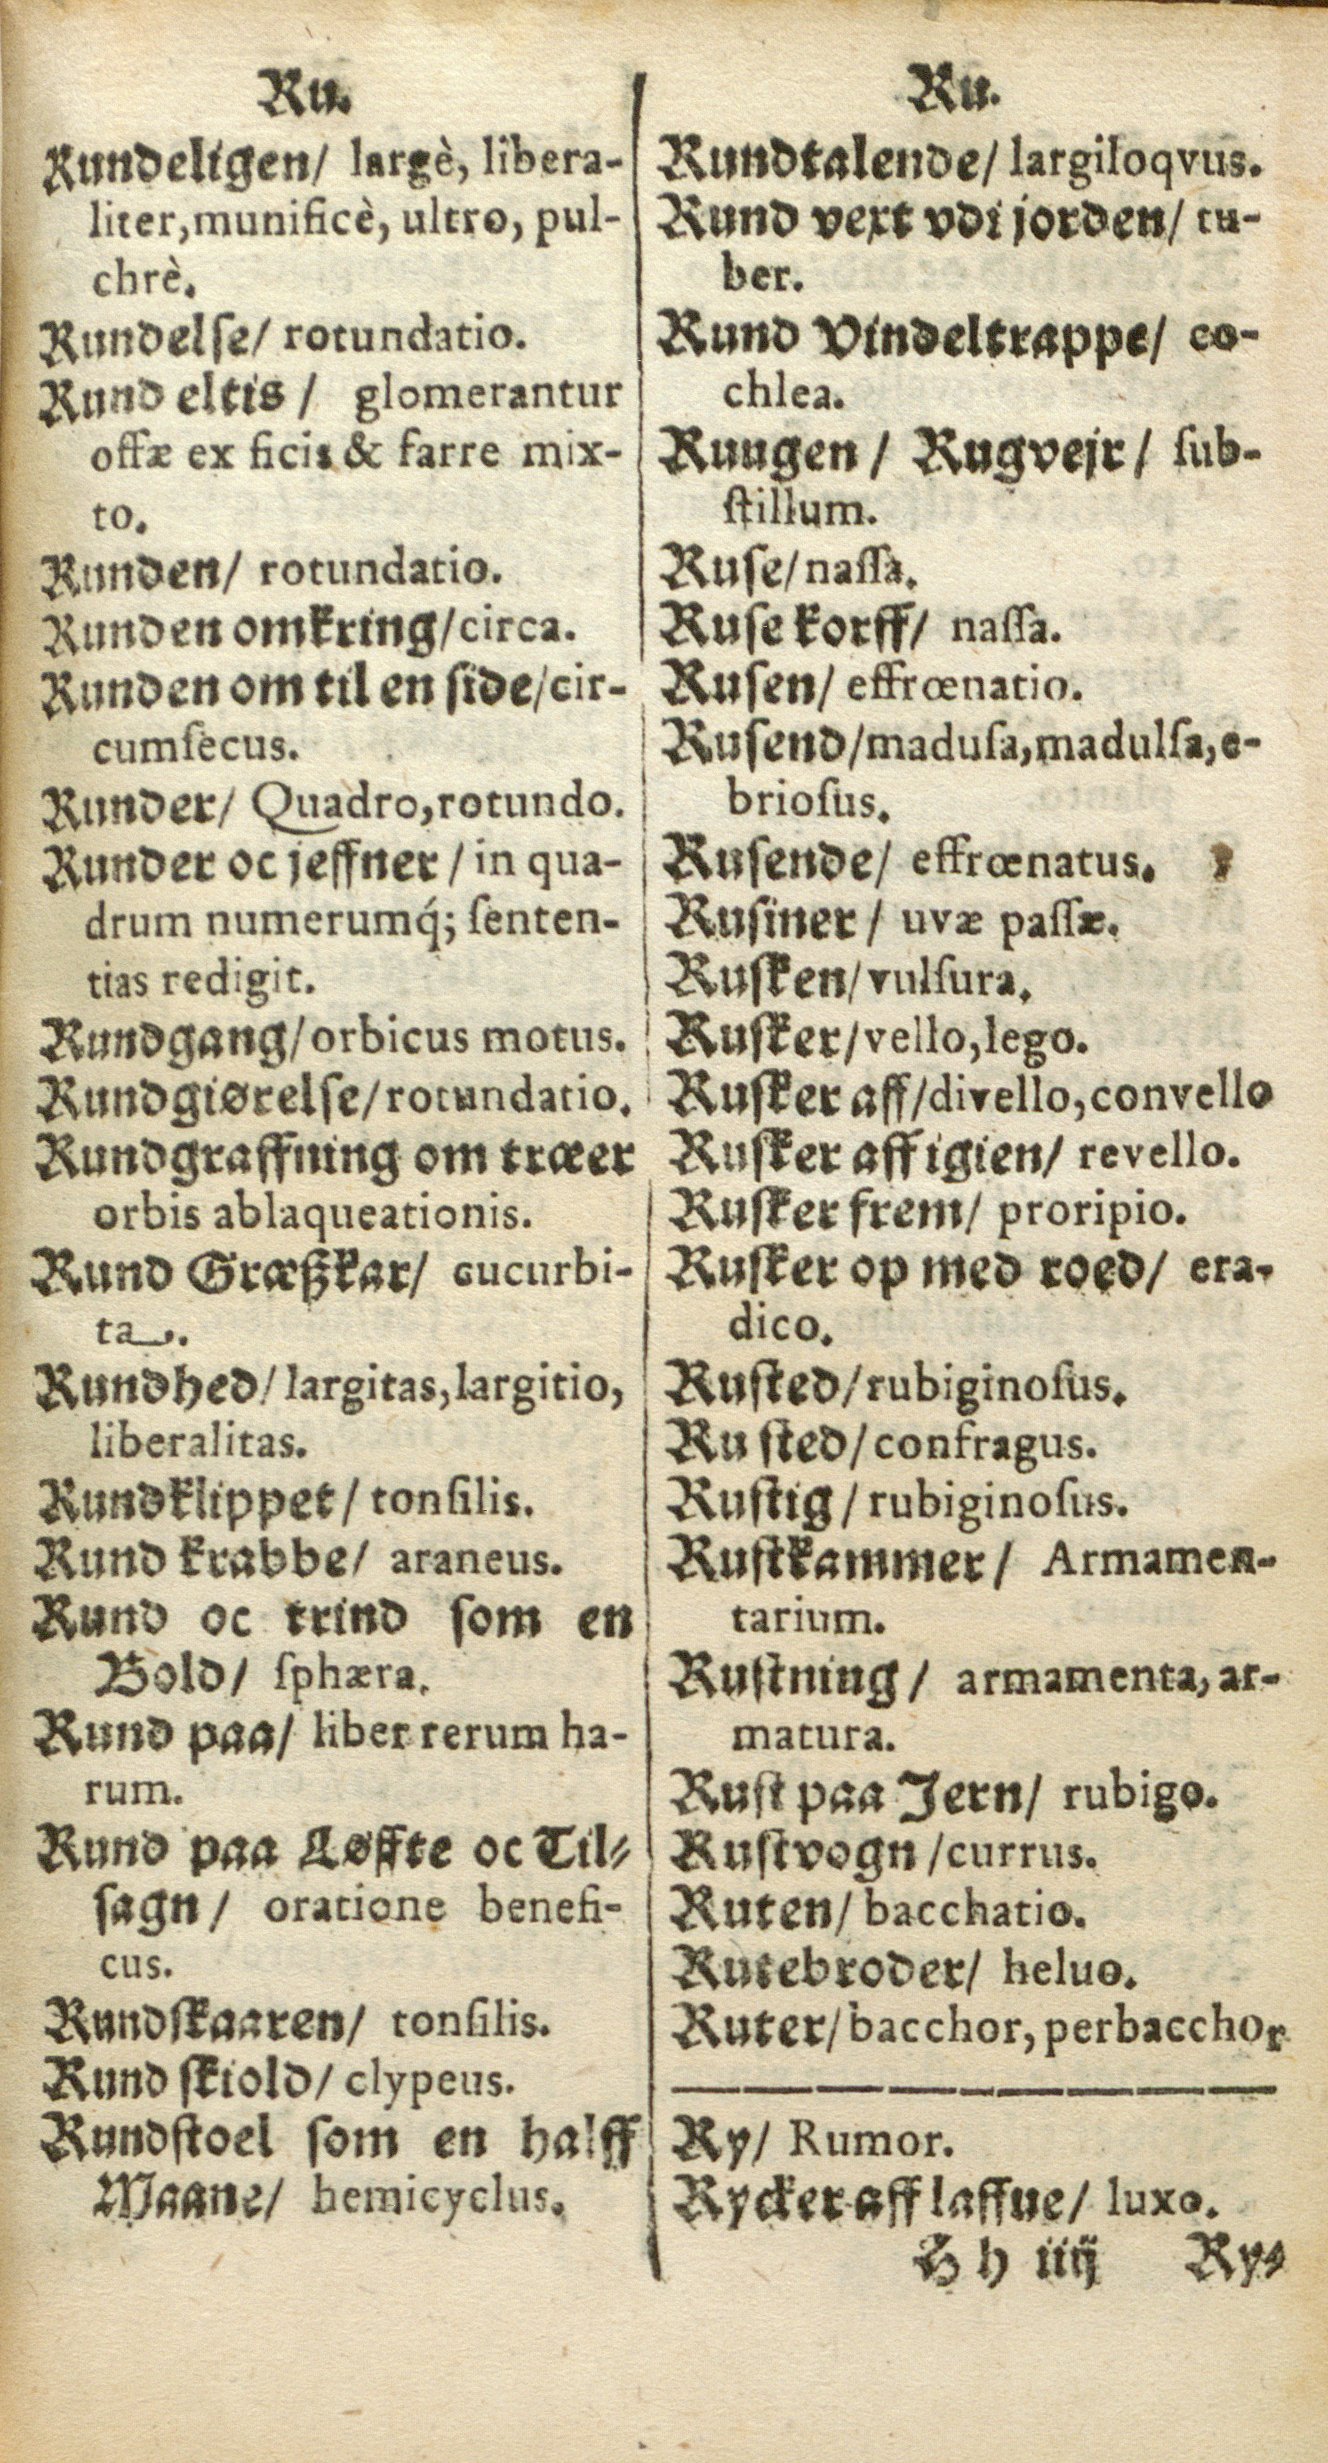 Ru.
Rundeligen/ largè, libera-
liter, munificè, ultro, pul-
chrè.
Rundelſe/ rotundatio.
Rund eltis / glomerantur
offæ ex ficis & farre mix-
to.
Runden/ rotundatio.
Runden omkring/circa.
Runden om til en ſide/cir-
cumſecus.
Runder/ Quadro, rotundo.
Runder oc jeffner / in qua-
drum numerumq́; ſenten-
tias redigit.
Rundgang/orbicus motus.
Rundgiørelſe/rotundatio.
Rundgraffning om træer
orbis ablaqueationis.
Rund Græßkar/ cucurbi-
ta.
Rundhed/ largitas, largitio,
liberalitas.
Rundklippet/ tonſilis.
Rund krabbe/ araneus.
Rund oc trind ſom en
Bold/ ſphæra.
Rund paa/ liber rerum ha-
rum.
Rund paa Løffte oc Til-
ſagn/ oratione benefi-
cus.
Rundſkaaren/ tonſilis.
Rund ſkiold/ clypeus.
Rundſtoel ſom en halff
Maane/ hemicyclus.
Ru.
Rundtalende/ largiloqvus.
Rund vext vdi jorden/ tu-
ber.
Rund Vindeltrappe/ co-
chlea.
Ruugen / Rugvejr/ ſub-
ſtillum.
Ruſe/naſſa.
Ruſe korff/ naſſa.
Ruſen/ effrœnatio.
Ruſend/maduſa, madulſa, e-
brioſus.
Ruſende/ effrœnatus.
Ruſiner / uvæ paſſæ.
Ruſken/vulſura.
Ruſker/vello, lego.
Ruſker aff/divello, convello
Ruſker aff igien/ revello.
Ruſker frem/ proripio.
Ruſker op med roed/ era-
dico.
Ruſted/rubiginoſus.
Ru ſted/confragus.
Ruſtig / rubiginoſus.
Ruſtkammer/ Armamen-
tarium.
Ruſtning / armamenta, ar-
matura.
Ruſt paa Jern/ rubigo.
Ruſtvogn /currus.
Ruten/ bacchatio.
Rutebroder/ heluo.
Ruter/bacchor, perbacchor
Ry/ Rumor.
Rycker aff laffue/ luxo.
H h iiij Ry-